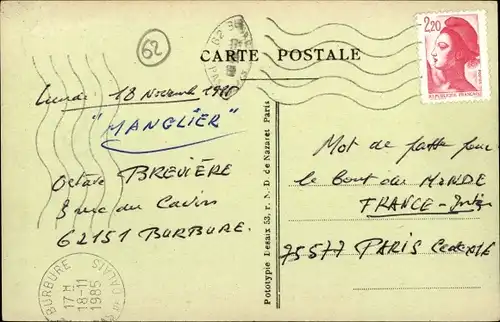 62
CARTE POSTALE
2,20
REPUBLIQUE FRANÇAISE
Lundi 18 Novembre 1985
"MANGLIER"
Octave BREVIÈRE
rue du
62151 BURBURE
Mot de passe pour
le bout du MONDE
FRANCE-Inter
75577 PARIS Cedex 16
Phototypie Desaix 53, r. N. D. de Nazaret Paris
BURBURE
CALAIS
17 H
18-11
1985